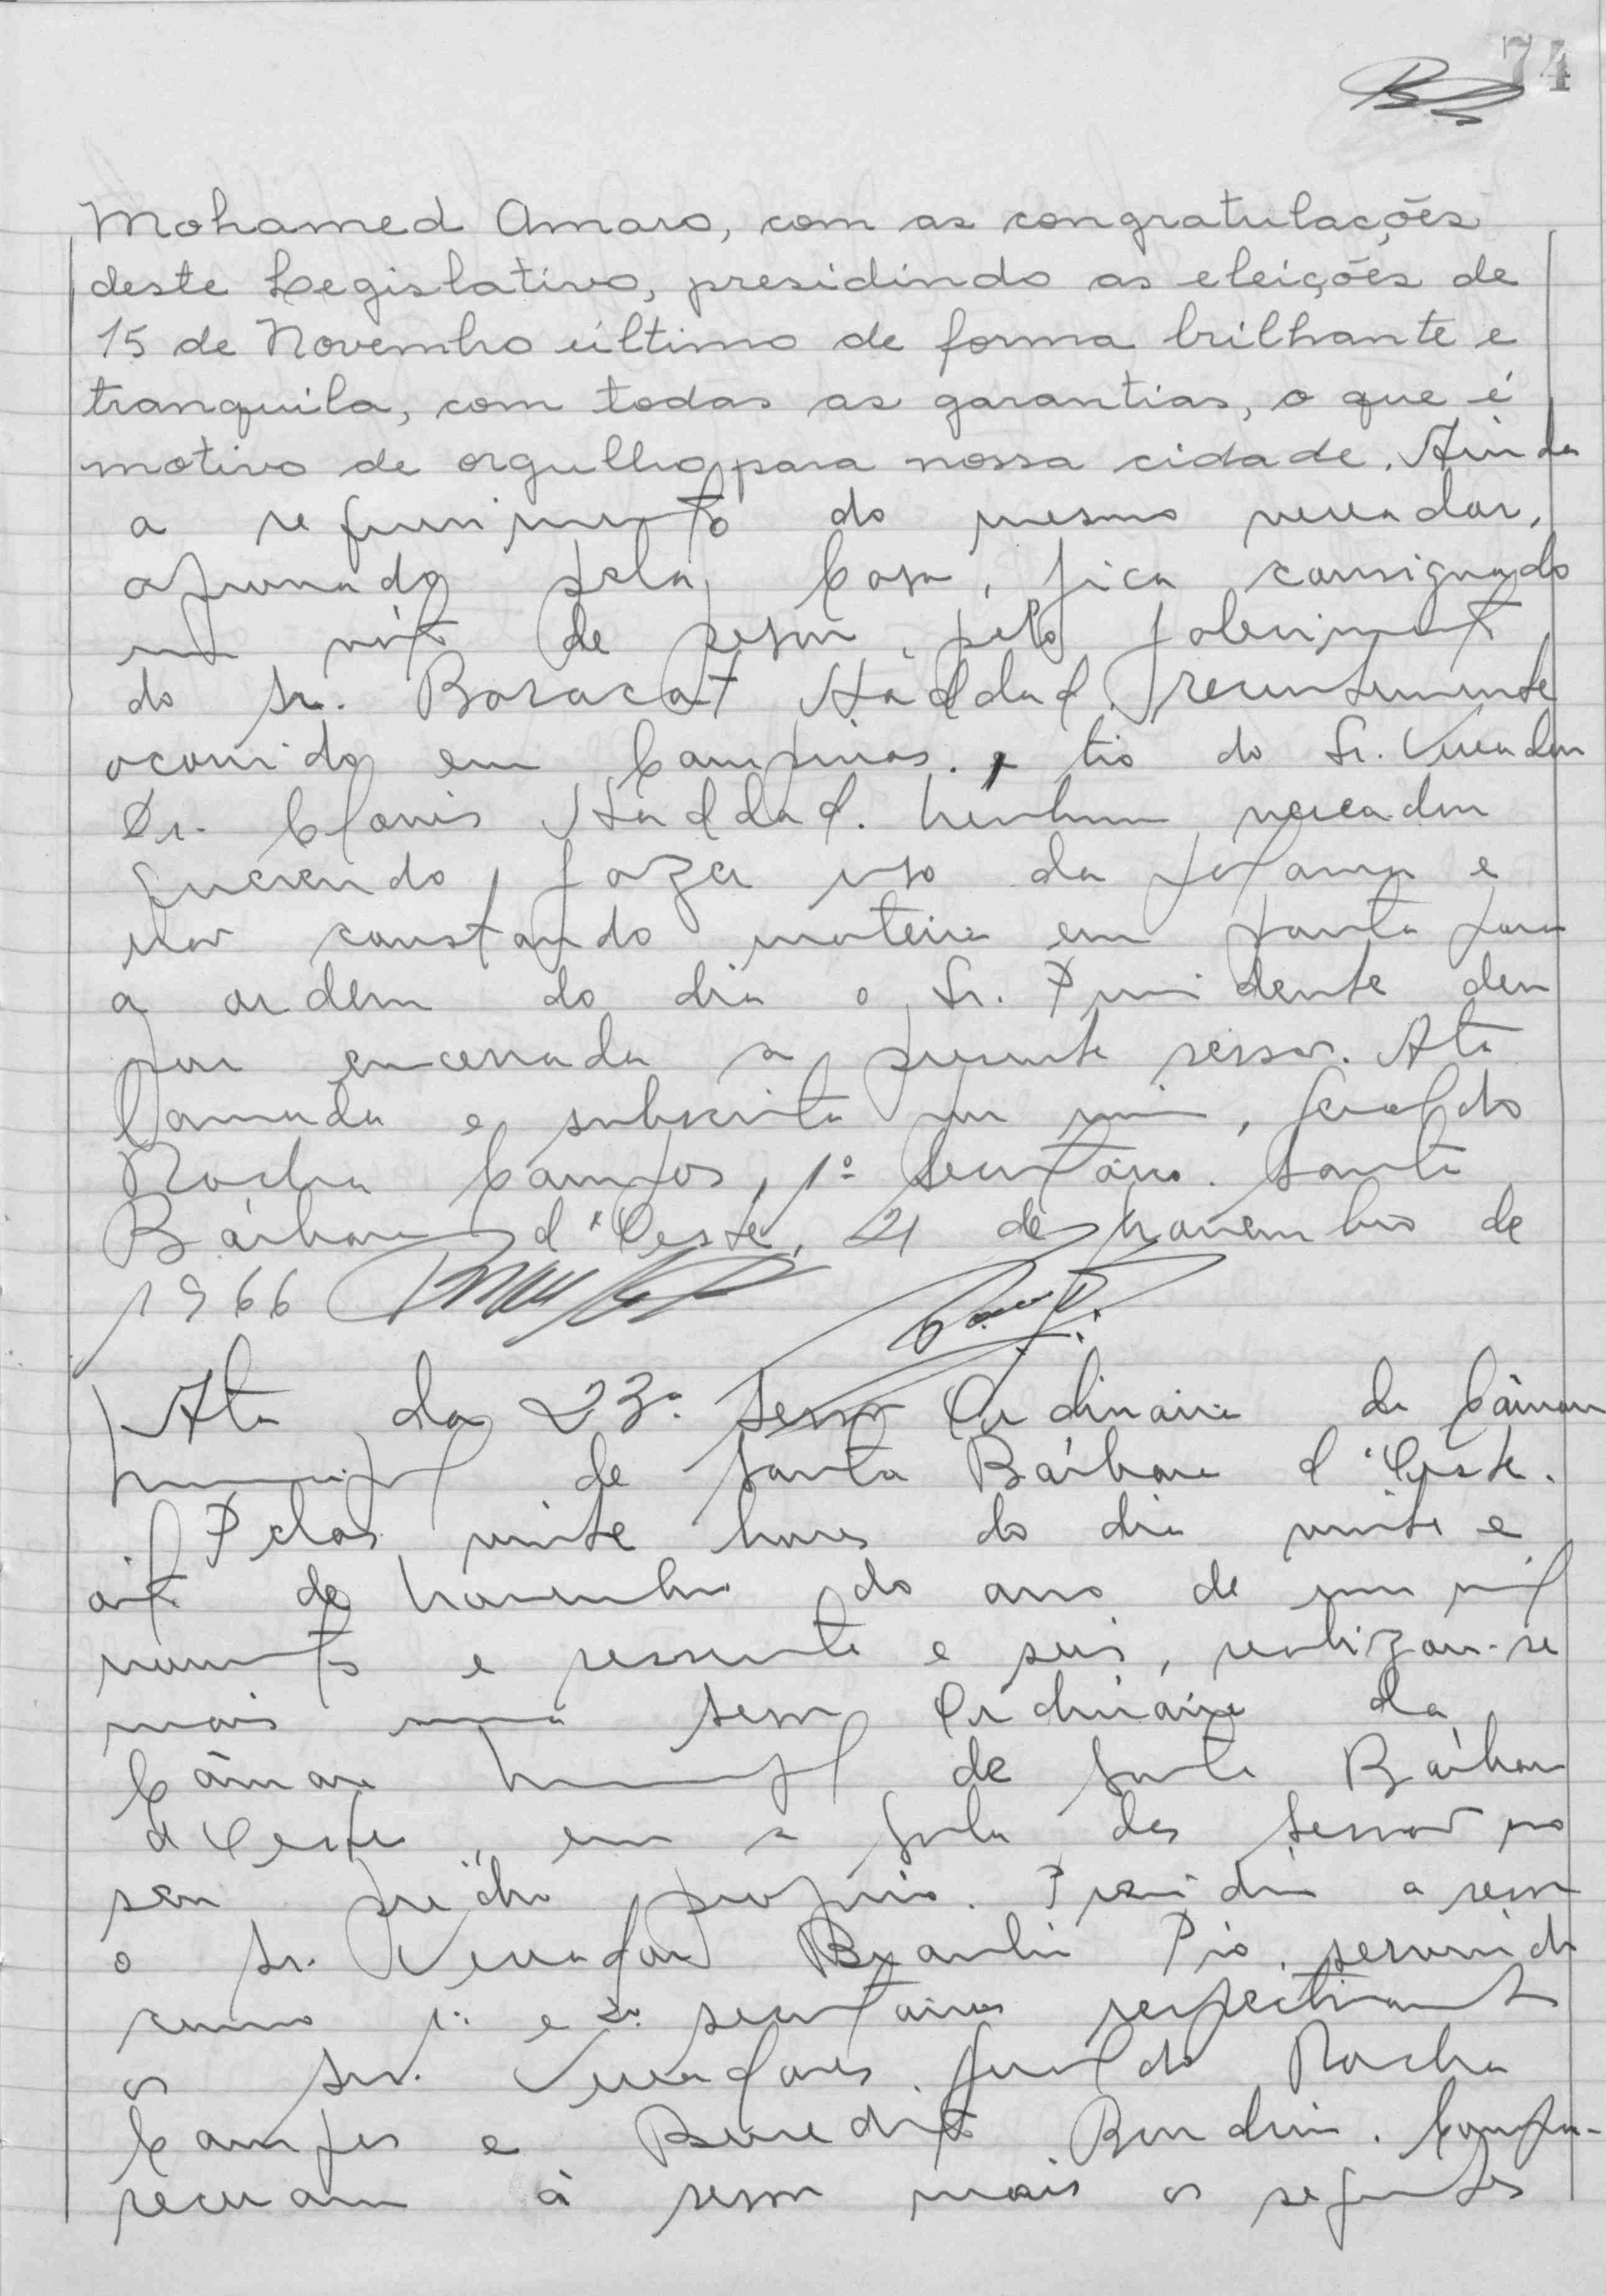 74
Mohamed Amaro, com as congratulações
deste Legislativo, presidindo as eleições de
15 de Novembro último de forma brilhante e
tranquila, com todas as garantias, o que é
motivo de orgulho para nossa cidade. Ainda
a requerimento do mesmo vereador,
aprovado pela Casa, fica consignado
um voto de pesar, pelo falecimento
do Sr. Baracat Haddad, recentemente
ocorrido em Campinas, tio do Sr. Vereador
Dr. Clovis Haddad. Nenhum vereador
querendo fazer uso da palavra e
não constando materia em pauta para
a ordem do dia o Sr. Presidente deu
por encerrada a presente sessão. Ata
lavrada e subscrita por mim, Geraldo
Rocha Campos, 1º Secretário. Santa
Bárbara d'Oeste, 21 de novembro de
1966
Ata da 23ª Sessão Ordinária da Câmara
Municipal de Santa Bárbara d'Oeste.
Pelas vinte horas do dia vinte e
oito de novembro do ano de um mil
novecentos e sessenta e seis, realizou-se
mais uma sessão Ordinária da
Câmara Municipal de Santa Bárbara
d'Oeste, em a sala das sessões no
seu prédio proprio. Presidiu a sessão
o Sr. Vereador Braulio Pio, servindo
como 1º e 2º secretários respectivamente
os srs. Vereadores Geraldo Rocha
Campos e Benedito Bondin. Compa-
receram à sessão mais os seguintes